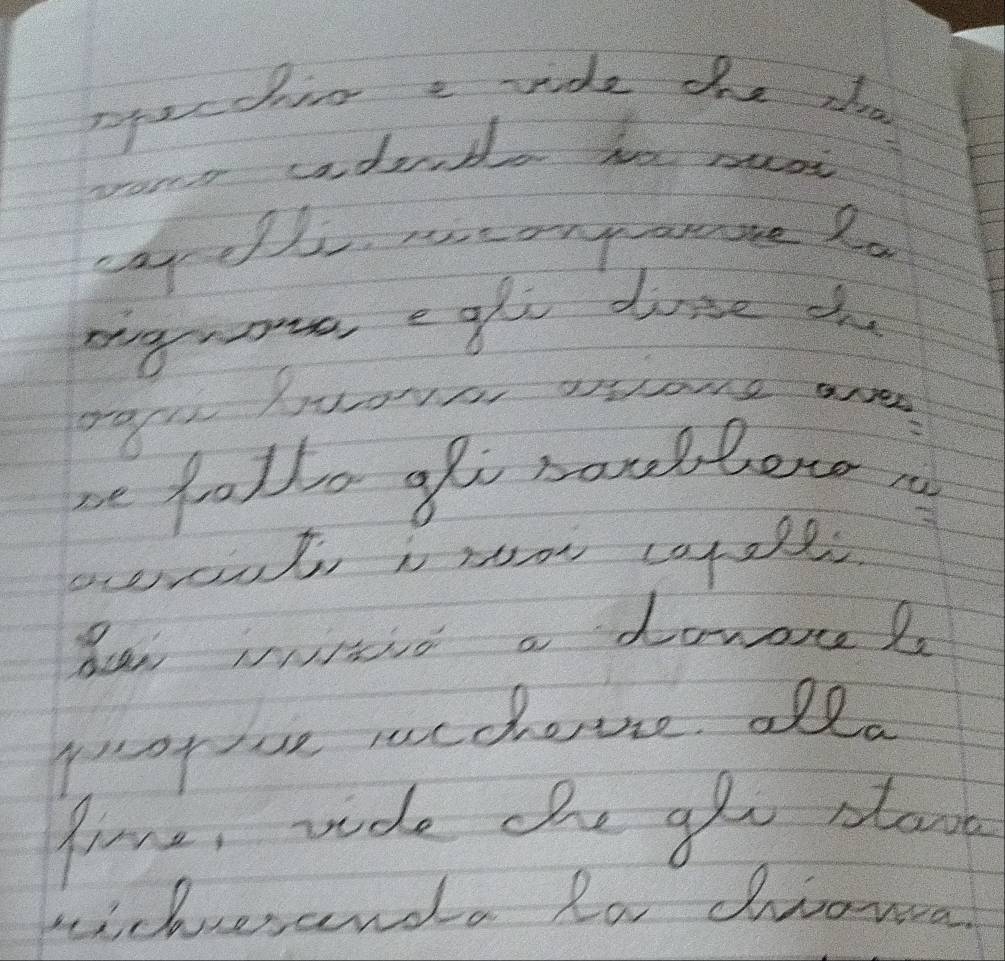 specchio e vide che sta=
vano cadendo in suoi
capelli. riconparve la
signora, e gli disse che
ogni buona azione aves=
se fatto gli sarebbero ri=
cresciuti i suoi capelli.
Lui iniziò a donare le
proprie ricchezze. alla
fine, vide che gli stava
richrescendo la chioma.